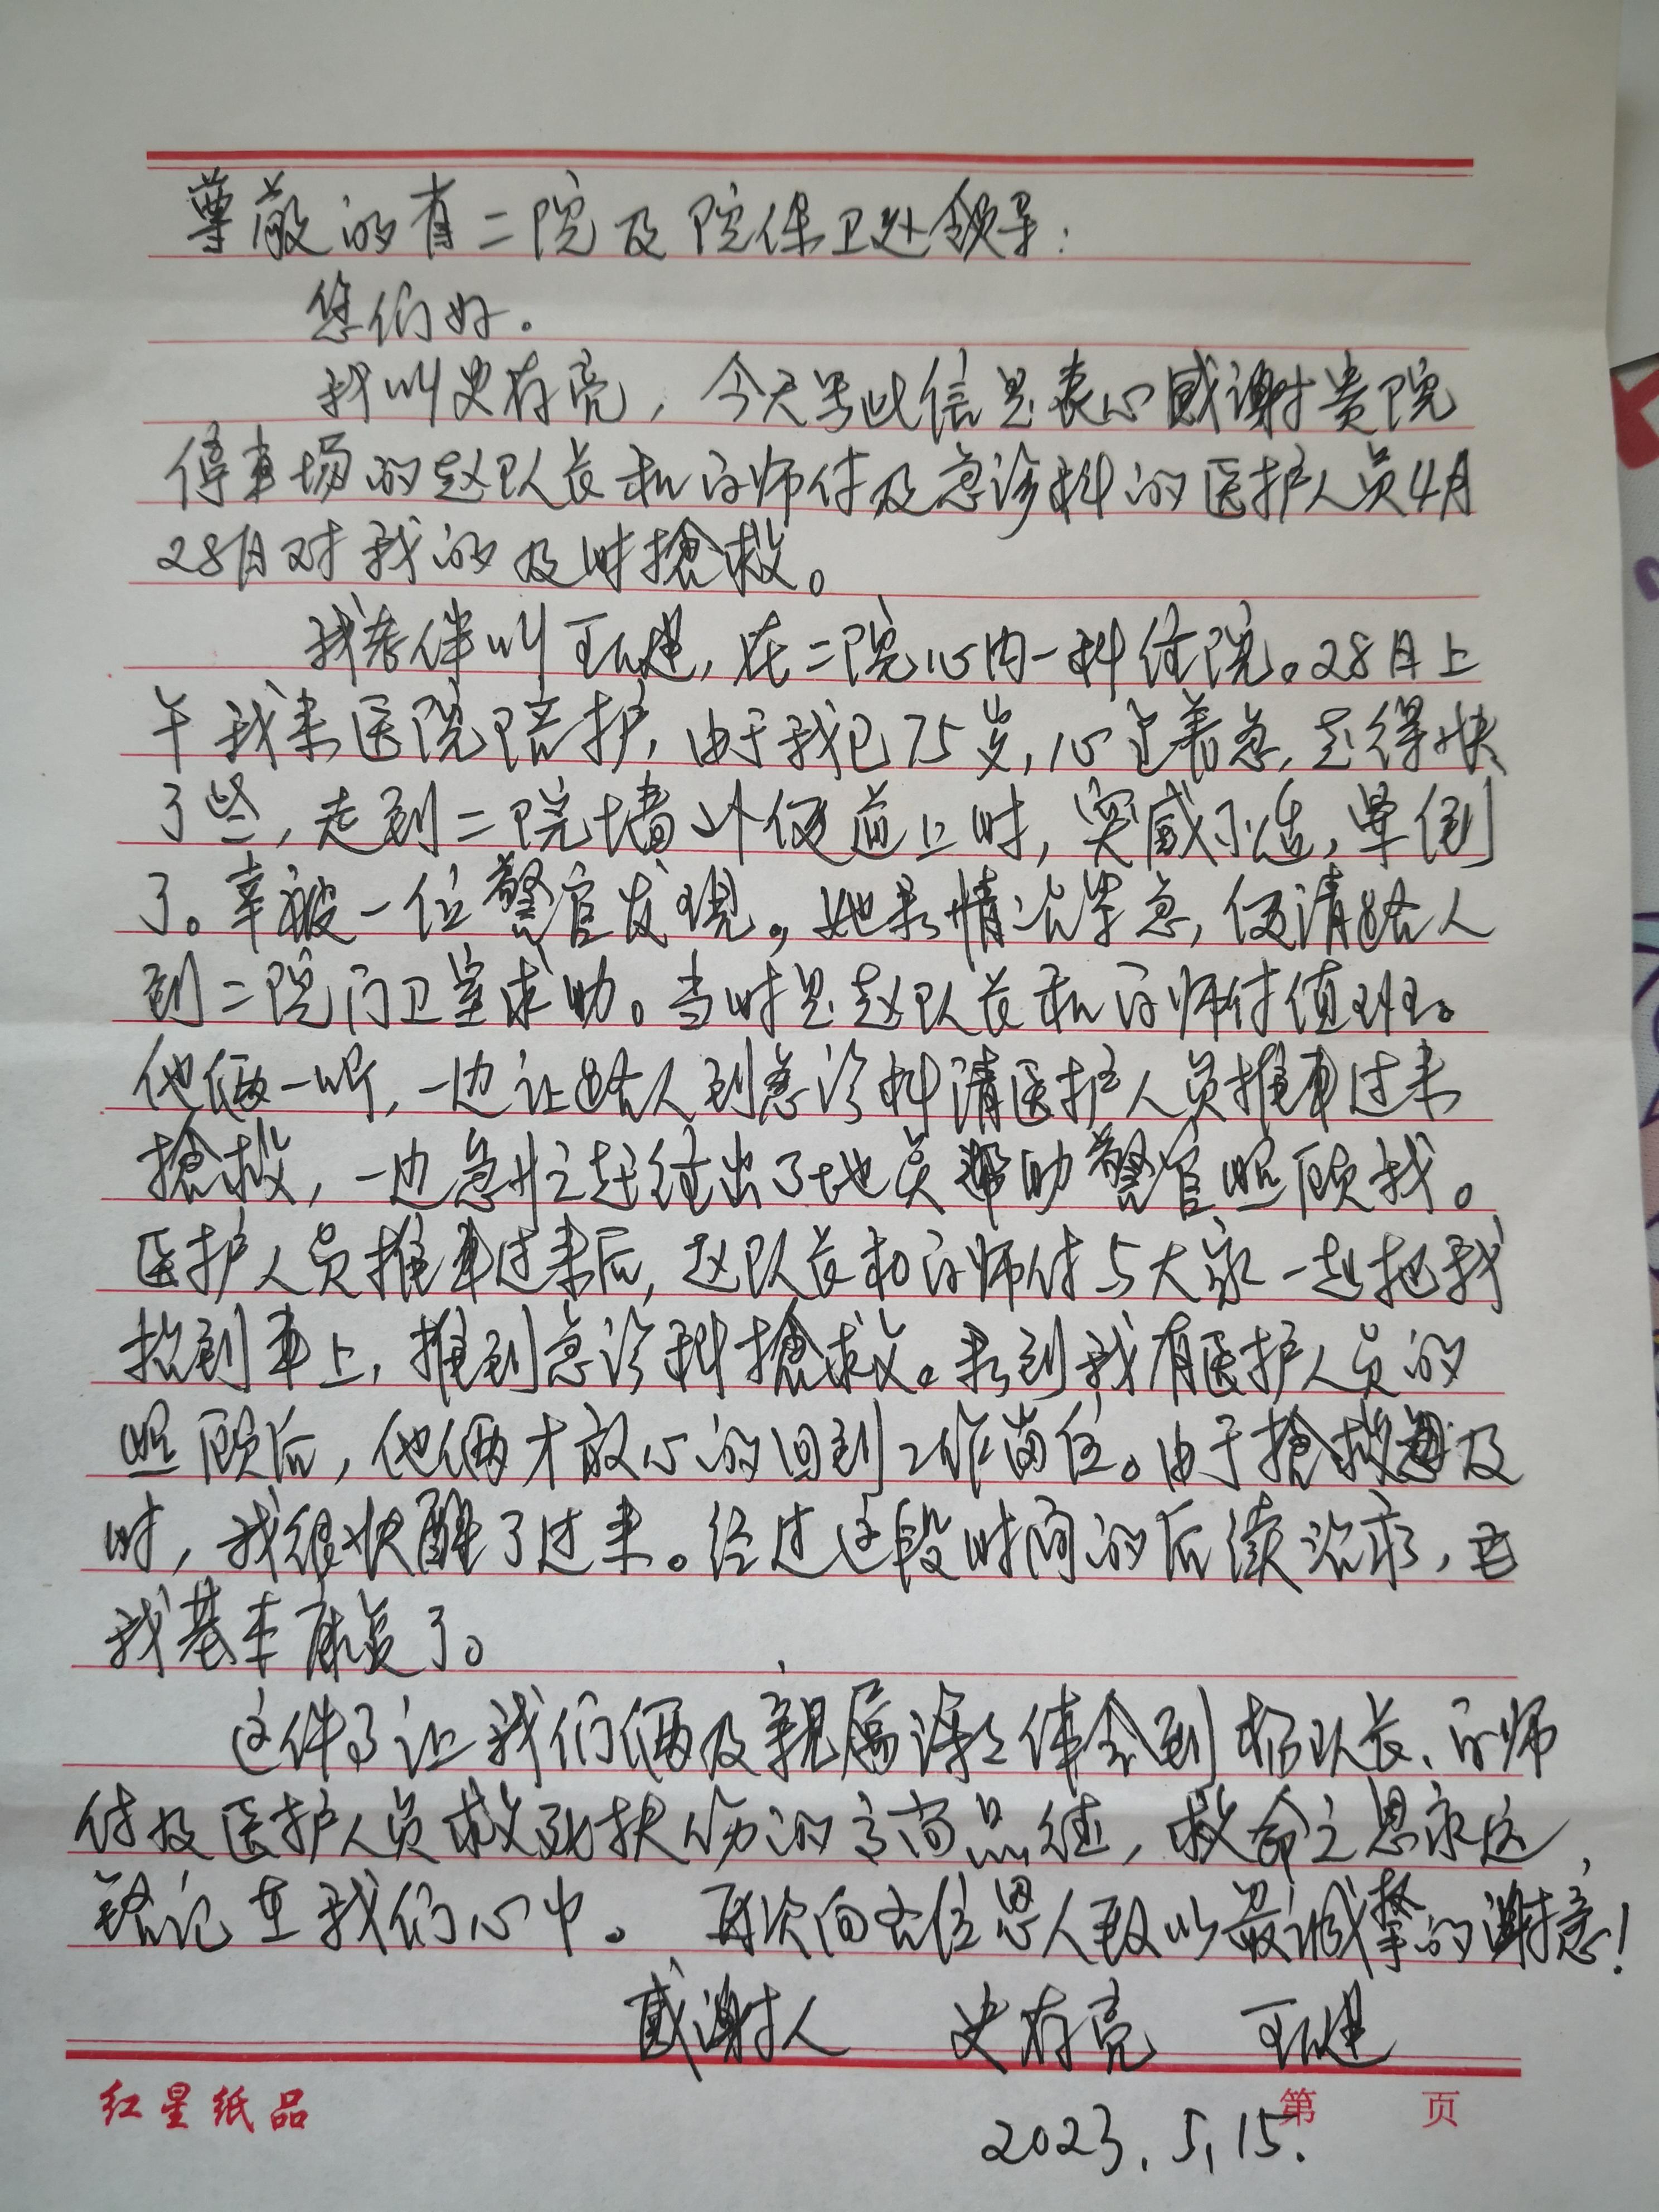 尊敬的省二院及院保卫处领导：
您们好。
我叫史存亮，今天写此信是衷心感谢贵院
停车场的赵队长和白师付及急诊科的医护人员4月
28日对我的及时抢救。
我老伴叫王建，在二院心内一科住院。28日上
午我来医院陪护，由于我已75岁，心里着急，走得快
了些，走到二院墙外便道上时，突感不适，晕倒
了。幸被一位警官发现，她看情况紧急，便请路人
到二院门卫室求助。当时是赵队长和白师付值班。
他俩一听，一边让路人到急诊科请医护人员推车过来
抢救，一边急忙赶往出了地点帮助警官照顾我。
医护人员推车过来后，赵队长和白师付与大家一起把我
抬到车上，推到急诊科抢救。看到我有医护人员的
照顾后，他俩才放心的回到工作岗位。由于抢救及
时，我很快醒了过来。经过这段时间的后续治疗，
我基本康复了。
这件事让我们俩及亲属深深体会到 队长、白师
付及医护人员救死扶伤的高尚品德，救命之恩永远
铭记在我们心中。再次向各位恩人致以最诚挚的谢意！
感谢人 史存亮 王建
2023.5.15.
红星纸品
第 页